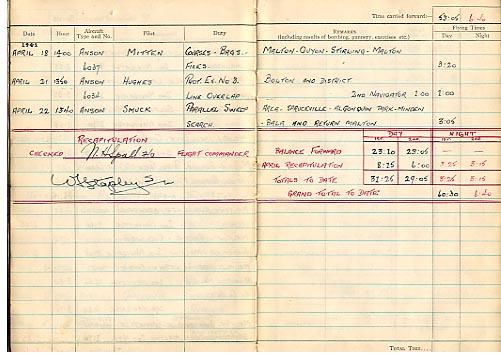 Time carried forward:— 53:05 6.40
Date Hour Aircraft Type and No. Pilot Duty REMARKS (Including results of bombing, gunnery, exercises etc.) Flying Times Day Night
1941
APRIL 18 1400 ANSON MITTEN COURSES - BRGS. - MALTON - QUYON - STIRLING - MALTON
6037 FILES. 3:20
APRIL 21 1340 ANSON HUGHES PROT. EX. No 2. BOLTON AND DISTRICT
6034 LINE OVERLAP 2ND NAVIGATOR 1:00 1:00
APRIL 22 1340 ANSON SMUCK PARALLEL SWEEP AREA - SPRUCEVILLE - ALGONQUIN PARK - MINDEN
SEARCH. - BALA AND RETURN MALTON 3:05
RECAPITULATION DAY NIGHT
CHECKED FLIGHT COMMANDER 1ST 2ND 1ST 2ND
BALANCE FORWARD 23:10 23:05 — —
APRIL RECAPITULATION 8:15 6:00 3:25 3:15
TOTALS TO DATE 31:25 29:05 3:25 3:15
GRAND TOTAL TO DATE 60:30 6:40
TOTAL TIME